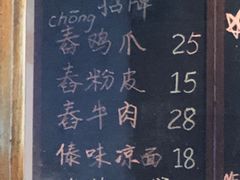 chōng
招牌
舂鸡爪 25
舂粉皮 15
舂牛肉 28
傣味凉面 18